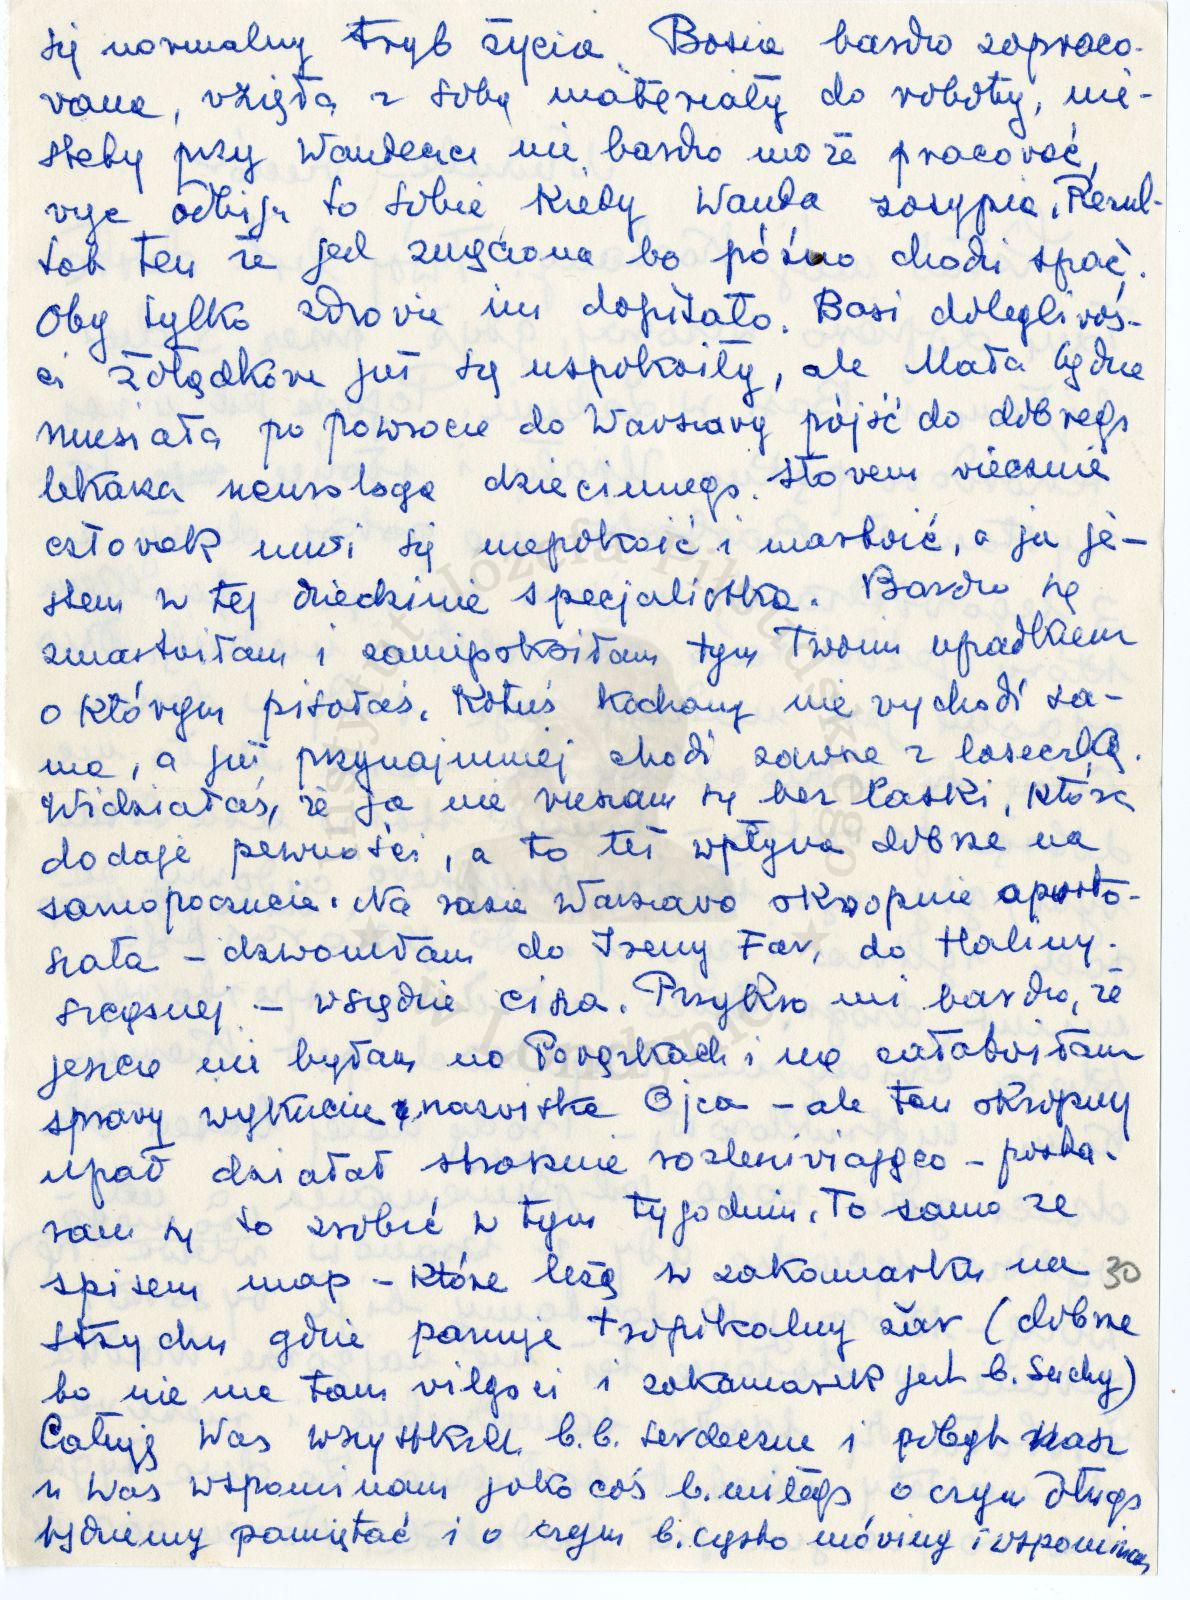 się normalny tryb życia. Basia bardzo zapraco-
wana, wzięła z sobą materiały do roboty, nie-
stety przy Wandeczce nie bardzo może pracować,
więc odbija to sobie kiedy Wanda zasypia. Rezul-
tat ten że jest zmęczona bo późno chodzi spać.
Oby tylko zdrowie im dopisało. Basi dolegliwoś-
ci żołądkowe już się uspokoiły, ale Mała będzie
musiała po powrocie do Warszawy pójść do dobrego
lekarza neurologa dziecinnego. Słowem wiecznie
człowiek musi się niepokoić i martwić, a ja je-
stem w tej dziedzinie specjalistka. Bardzo się
zmartwiłam i zaniepokoiłam tym Twoim upadkiem
o którym pisałaś. Kotuś kochany nie wychodź sa-
ma, a już przynajmniej chodź zawsze z laseczką.
Widziałaś, że ja nie ruszam się bez laski, która
dodaje pewności, a to też wpływa dobrze na
samopoczucie. Na razie Warszawa okropnie opusto-
szała – dzwoniłam do Ireny Faw, do Haliny
Szczęsnej – wszędzie cisza. Przykro mi bardzo, że
jeszcze nie byłam na Powązkach i nie załatwiłam
sprawy wykucia nazwiska Ojca – ale ten okropny
upał działał strasznie rozleniwiająco – posta-
ram się to zrobić w tym tygodniu. To samo ze
spisem map – które leżą w zakamarku na 30
strychu gdzie panuje tropikalny żar (dobrze
bo nie ma tam wilgoci i zakamarek jest b. suchy)
Całuję Was wszystkich b. b. serdecznie i pobyt nasz
u Was wspominam jako coś b. miłego o czym długo
będziemy pamiętać i o czym b. często mówimy i wspominam
Instytut Józefa Piłsudskiego
★ w Londynie ★